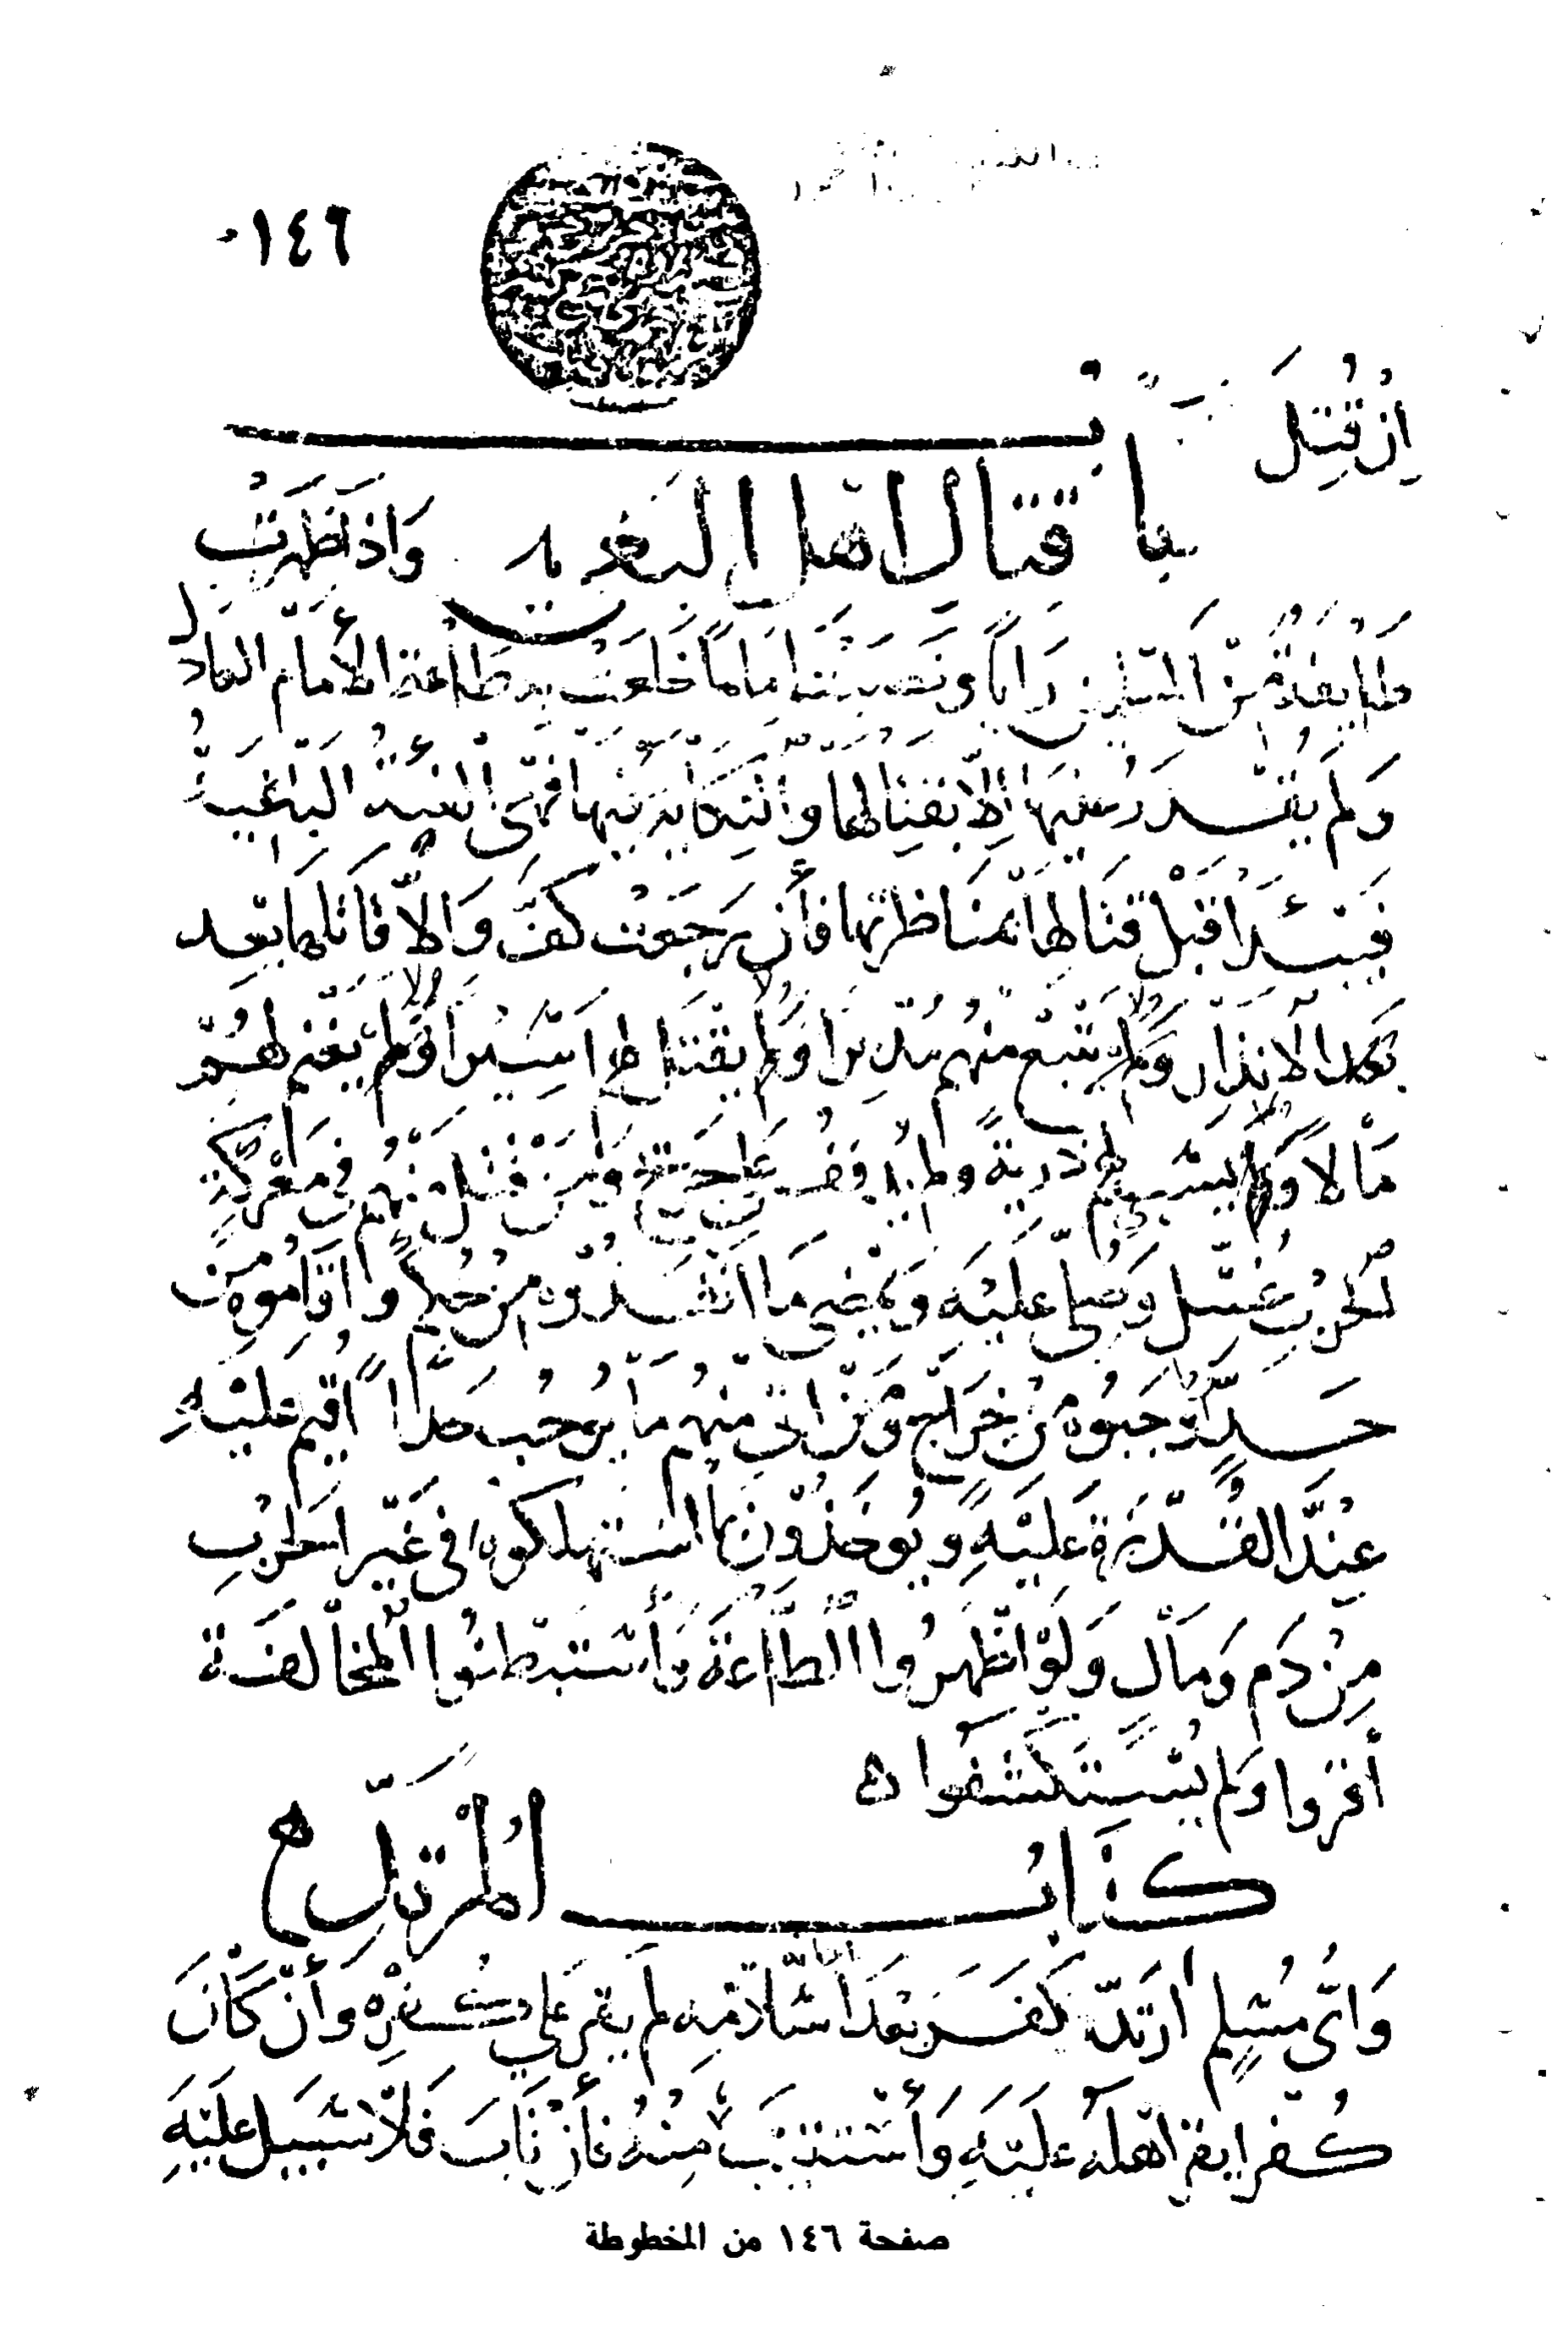 ١٤٦
إن قُتِل
باب
قتال أهل البغي وإذا ظهرت
طايفة من المسلمين رأياً ونصبت إماماً خلعت به طاعة الإمام العادل
ولم يقدر عليها إلا بقتالها فهي الفئة الباغية
فيبتدأ قبل قتالها بمناظرتها فأن رجعت كف وإلا قاتلها بعد
الانذار ولا يتبع منهم مدبراً ولا يقتل أسيراً ولا يغنم لهم
مالاً ولا يسبي لهم ذرية ومن قتل منهم في معركة
الحرب غسل وصلى عليه ويمضى ما انفذوه من حكم وأقاموه من
حد وجبوه من خراج ومن اتى منهم ما يوجب حداً أقيم عليه
عند القدرة عليه ويوخذون بما استهلكوه في غير الحرب
من دم ومال ولو اظهروا الطاعة وأستبطنوا المخالفة
أقروا ولم يستكشفوا ه
كتاب المرتد
وأى مسلم ارتد كفر بعد اسلامه لم يقر على كفره وأن كان
كفرا يقر اهله عليه وأستتيب منه فأن تاب فلا سبيل عليه
صفحة ١٤٦ من المخطوطة